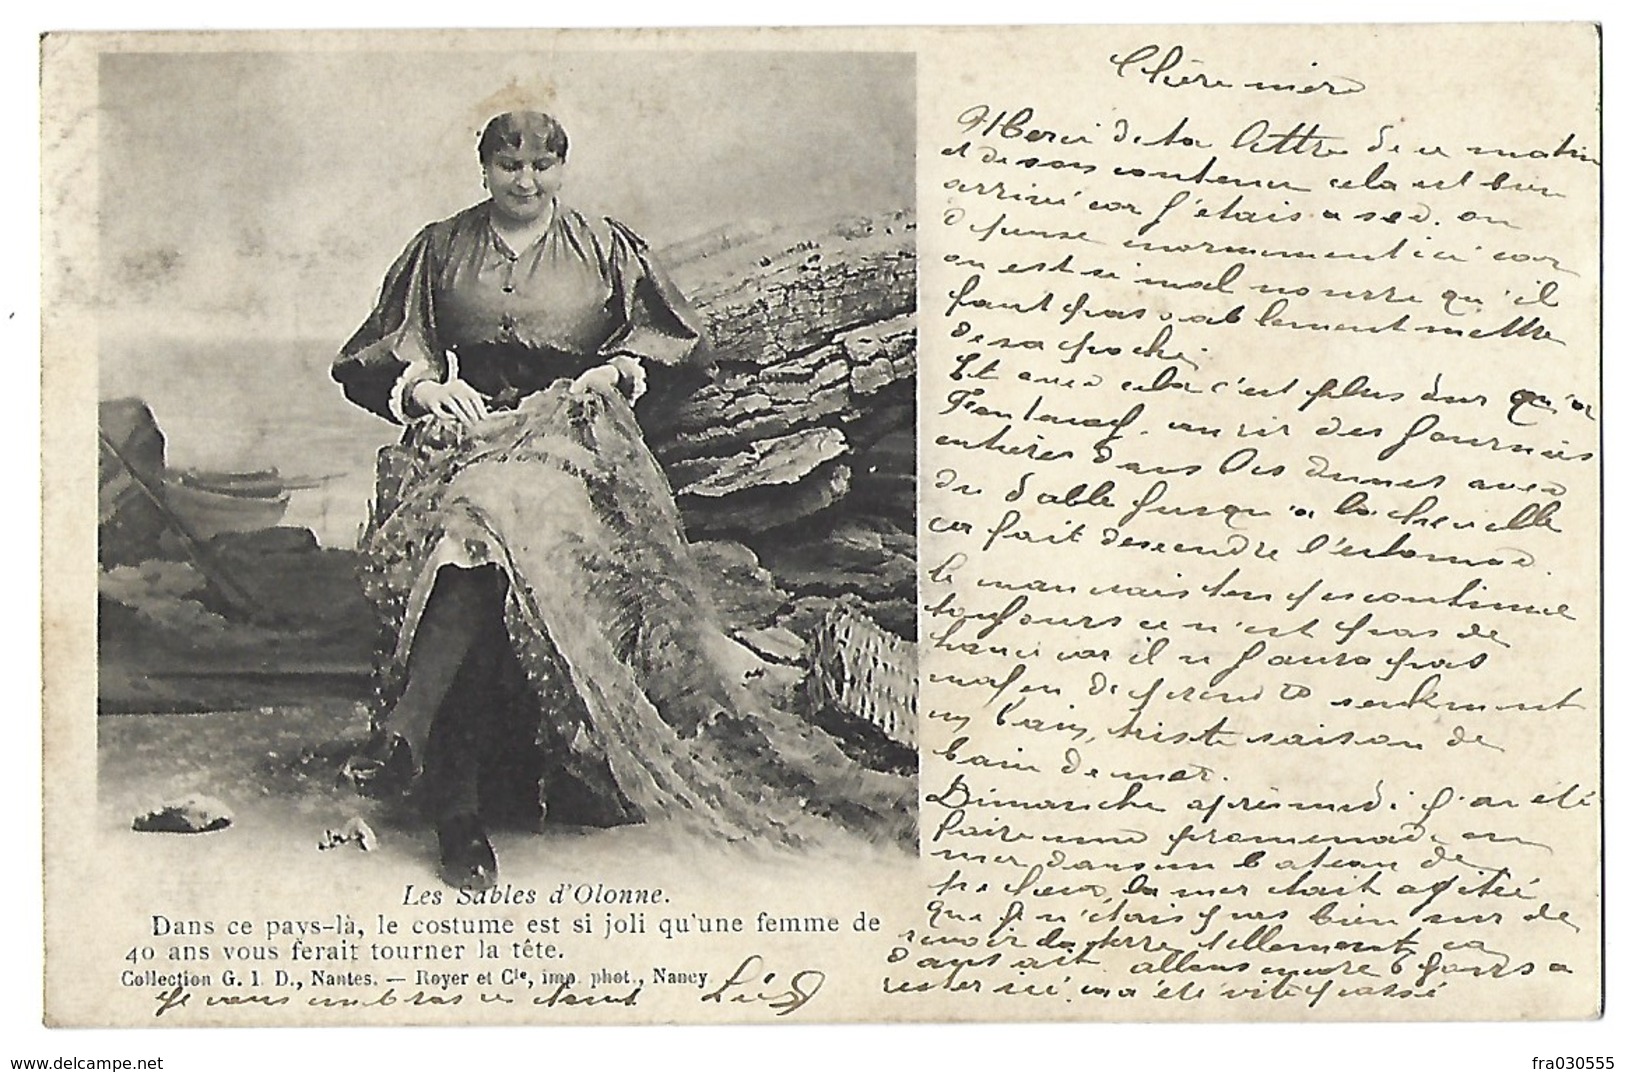 Chère mère
Merci de ta lettre de ce matin
et de son contenu cela est bien
arrivé car j'étais a sec. on
dépense enormement ici car
on est si mal nourre qu'il
faut pas sablement mettre
de sa poche.
Et avec cela c'est plus dur qu'a
courir des journées
entières dans les dunes avec
du sable jusqu'a la cheville
ca fait descendre l'estomac.
le mauvais temps continue
toujours ce n'est pas de
chance car il n'y aura pas
moyen de prendre seulement
un bain, triste saison de
bain de mer.
Dimanche apres midi j'ai été
faire une promenade en
mer dans un bateau de
pecheur, la mer etait agitée
que je n'étais pas bien sur de
revoir la terre, tellement ca
dansait. allons encore 6 jours a
rester ici. ca a été vite passé
Les Sables d'Olonne.
Dans ce pays-là, le costume est si joli qu'une femme de
40 ans vous ferait tourner la tête.
Collection G. I. D., Nantes. — Royer et Cie, imp. phot., Nancy.
Je vous embrasse tous
www.delcampe.net
fra030555